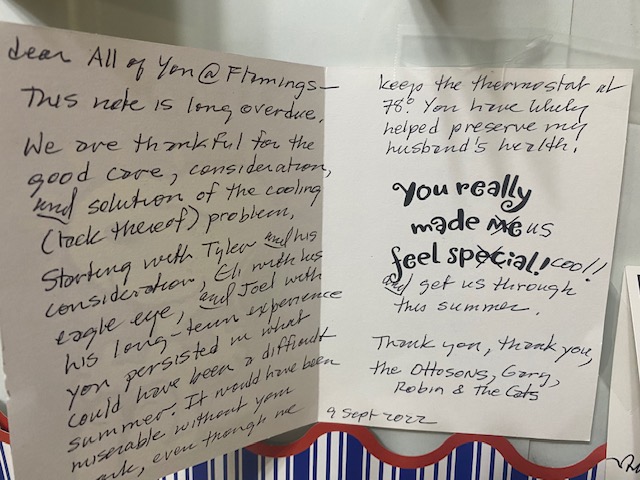 dear All of You @ Flemings—
This note is long overdue.
We are thankful for the
good care, consideration,
and solution of the cooling
(lack thereof) problem,
Starting with Tyler and his
consideration, Eli with his
eagle eye, and Joel with
his long-term experience
you persisted in what
could have been a difficult
summer. It would have been
miserable without your
work, even though we
keeps the thermostat at
78°. You have likely
helped preserve my
husband's health!
You really
made me us
feel special! cool!!
and get us through
this summer.
Thank you, thank you,
the Ottosons, Gary,
Robin & The Cats
9 Sept 2022